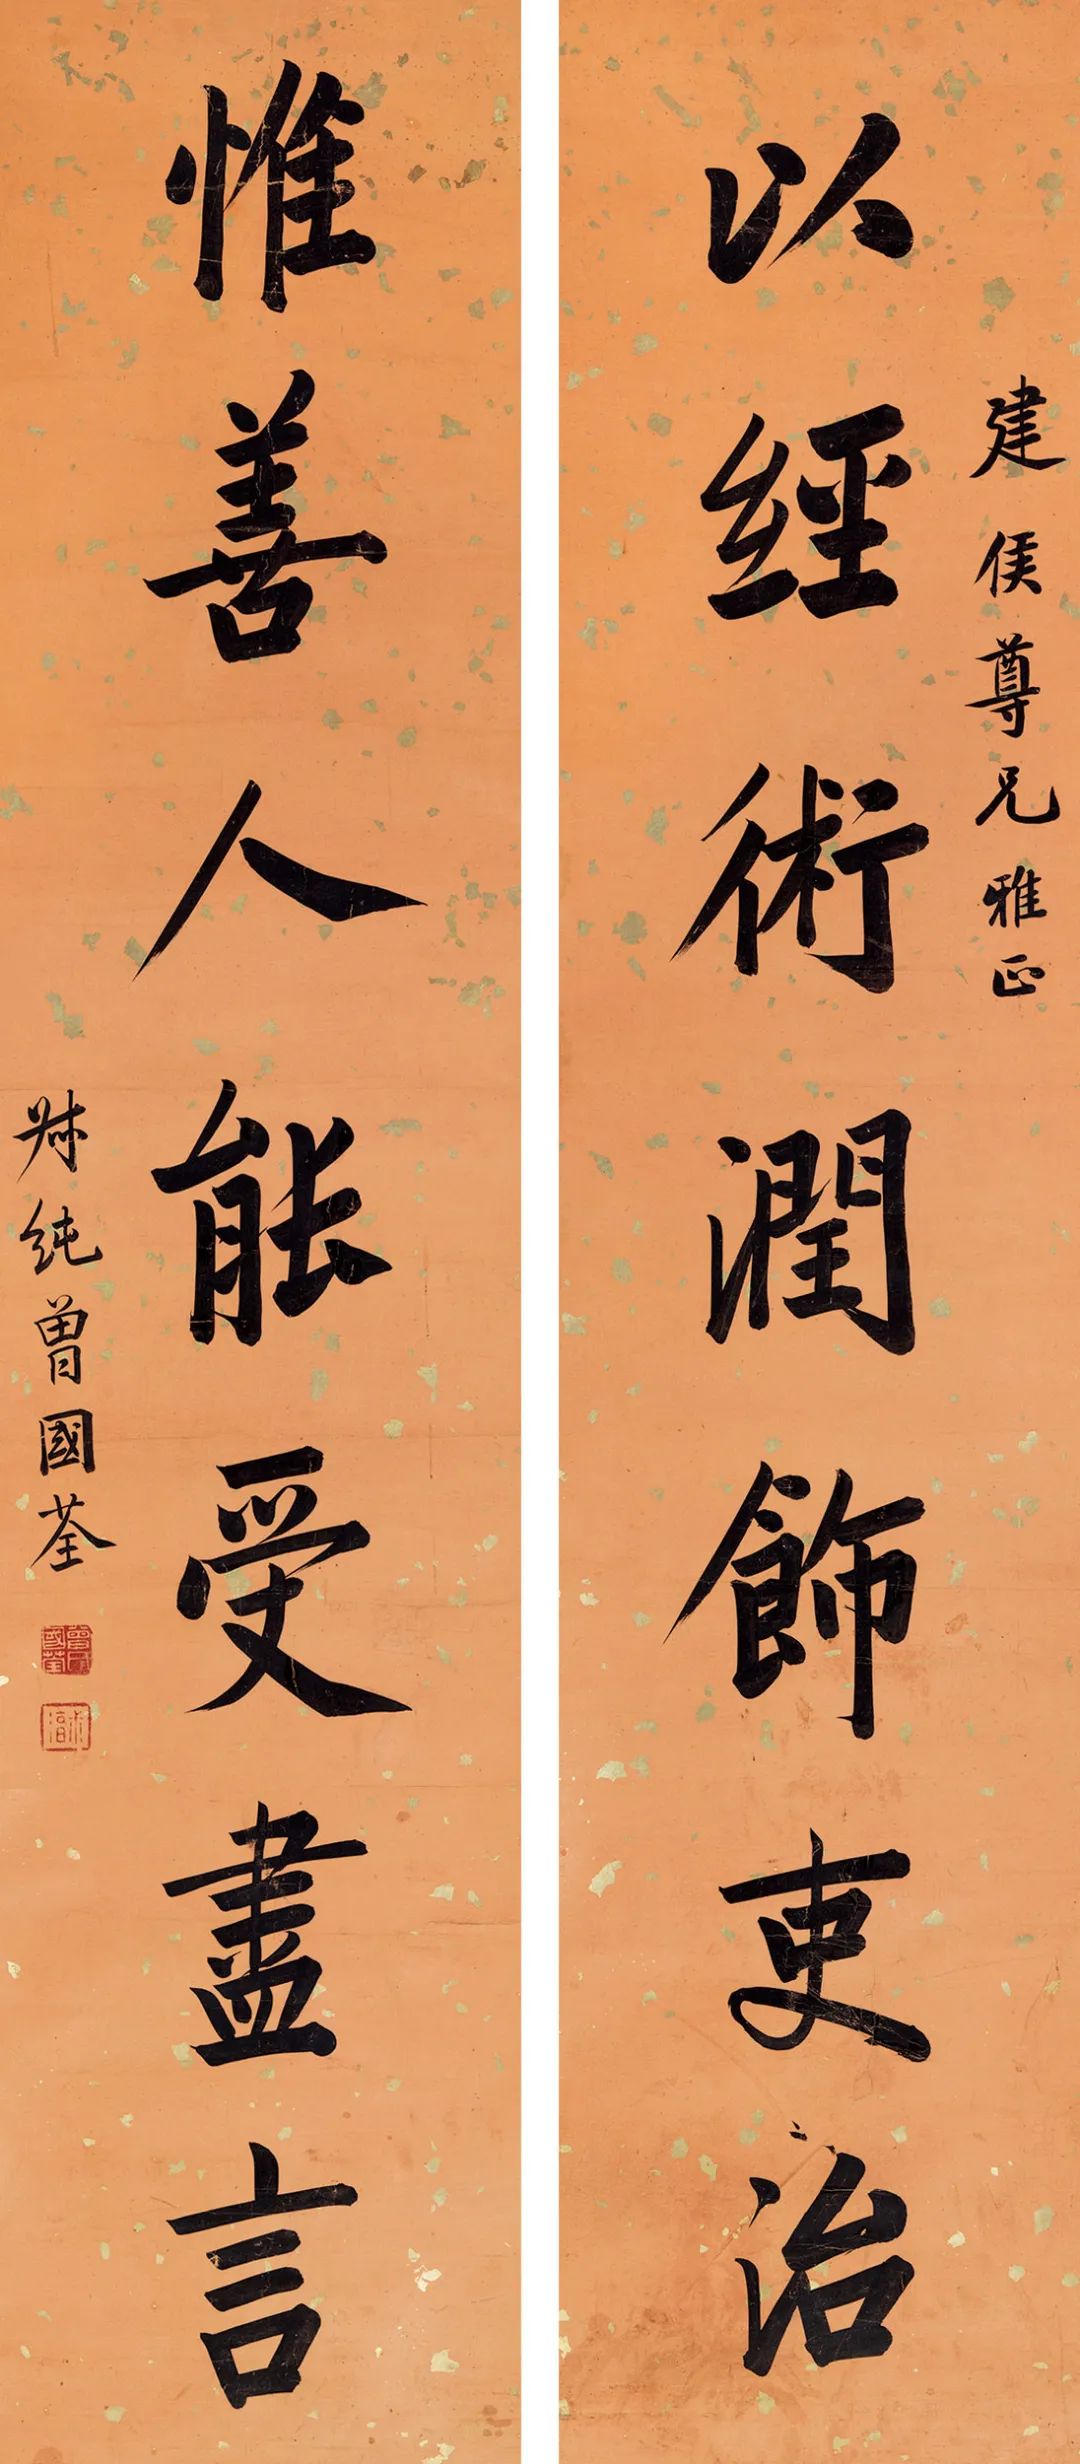 建侯尊兄雅正
以經術潤飾吏治
惟善人能受盡言
叔純曾國荃